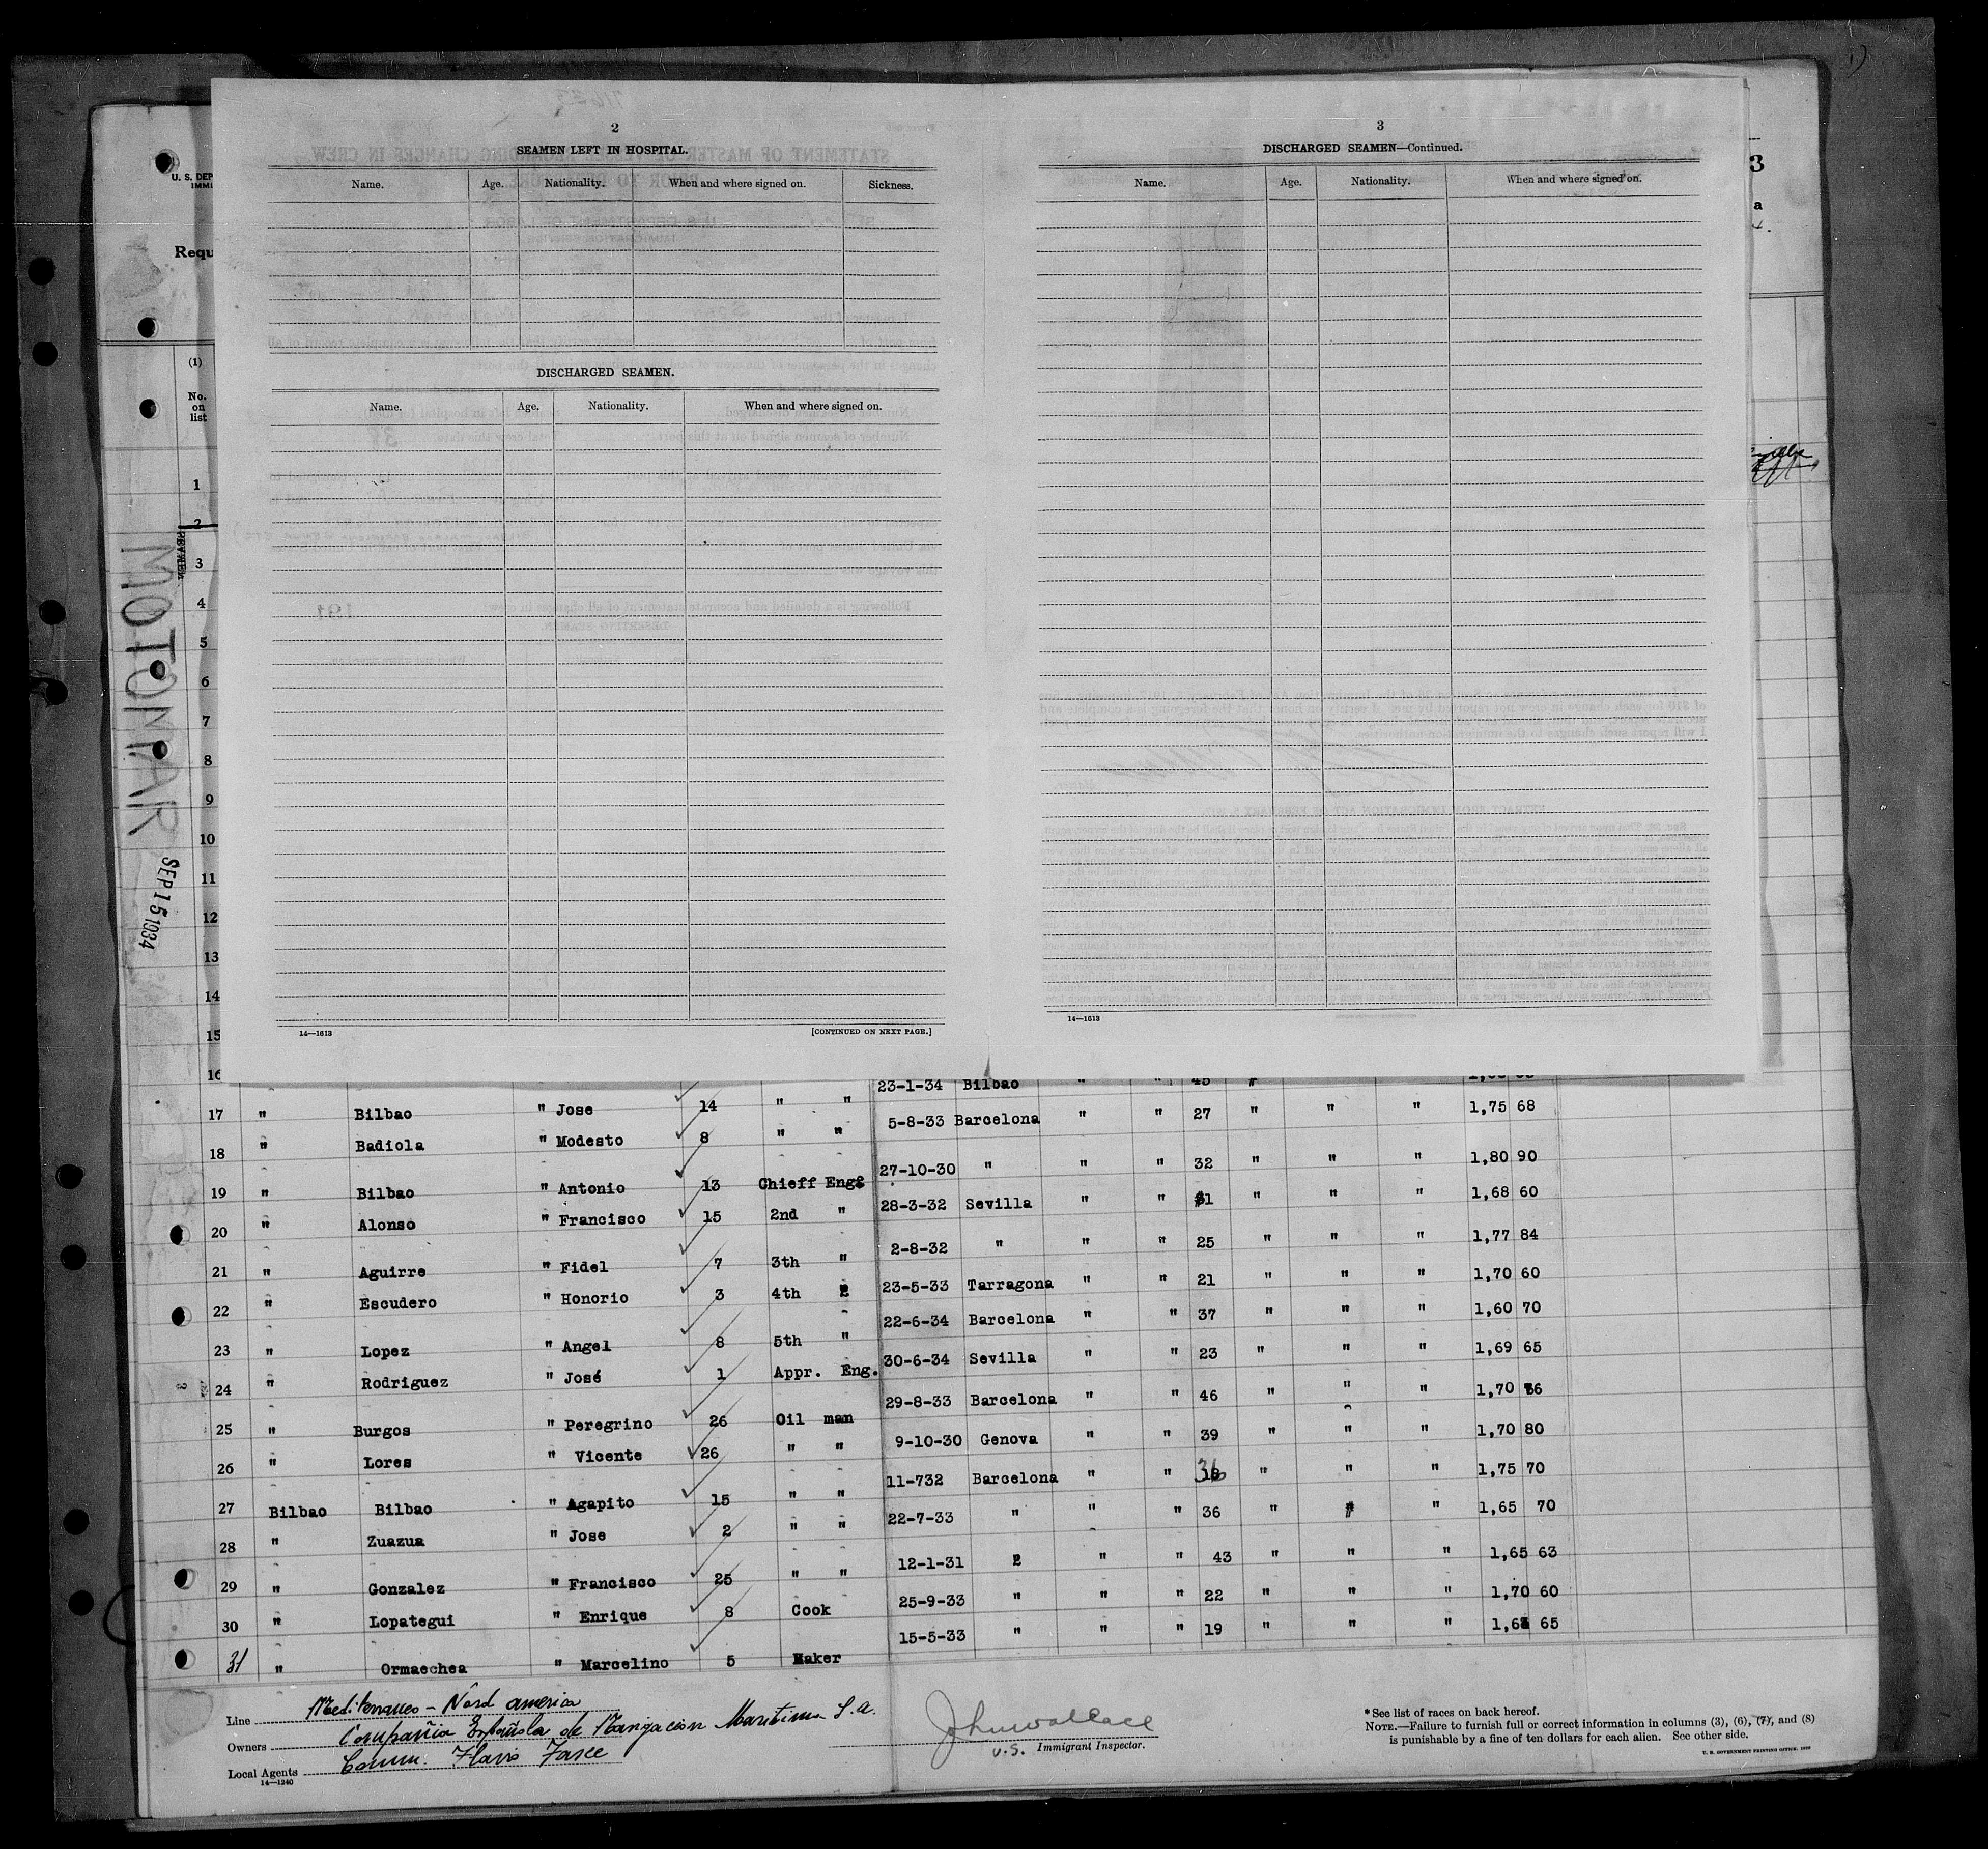 2
SEAMEN LEFT IN HOSPITAL.
Name. Age. Nationality. When and where signed on. Sickness.
DISCHARGED SEAMEN.
Name. Age. Nationality. When and where signed on.
14—1613 [CONTINUED ON NEXT PAGE.]
3
DISCHARGED SEAMEN—Continued.
Name. Age. Nationality. When and where signed on.
14—1613
U. S. DEP
IMMI
Requ
(1)
No.
on
list
3
a
MOTOMAR
SEP 15 1934
1
2
3
4
5
6
7
8
9
10
11
12
13
14
15
16 23-1-34 Bilbao " " 45 "
17 " Bilbao " Jose 14 " " 5-8-33 Barcelona " " 27 " " " 1,75 68
18 " Badiola " Modesto 8 " " 27-10-30 " " " 32 " " " 1,80 90
19 " Bilbao " Antonio 13 Chieff Eng 28-3-32 Sevilla " " 31 " " " 1,68 60
20 " Alonso " Francisco 15 2nd " 2-8-32 " " " 25 " " " 1,77 84
21 " Aguirre " Fidel 7 3th " 23-5-33 Tarragona " " 21 " " " 1,70 60
22 " Escudero " Honorio 3 4th " 22-6-34 Barcelona " " 37 " " " 1,60 70
23 " Lopez " Angel 8 5th " 30-6-34 Sevilla " " 23 " " " 1,69 65
24 " Rodriguez " José 1 Appr. Eng. 29-8-33 Barcelona " " 46 " " " 1,70 76
25 " Burgos " Peregrino 26 Oil man 9-10-30 Genova " " 39 " " " 1,70 80
26 " Lores " Vicente 26 " " 11-732 Barcelona " " 36 " " " 1,75 70
27 Bilbao Bilbao " Agapito 15 " " 22-7-33 " " " 36 " " " 1,65 70
28 " Zuazua " Jose 2 " " 12-1-31 " " " 43 " " " 1,65 63
29 " Gonzalez " Francisco 25 " " 25-9-33 " " " 22 " " " 1,70 60
30 " Lopategui " Enrique 8 Cook 15-5-33 " " " 19 " " " 65
31 " Ormaechea " Marcelino 5 Baker
Line Mediterraneo - Nord america
Owners Compañia Española de Navigacion Maritima S.A.
Local Agents Comm. Flavio Fasce
14—1240
John Wallace
U.S. Immigrant Inspector.
*See list of races on back hereof.
NOTE.—Failure to furnish full or correct information in columns (3), (6), (7), and (8)
is punishable by a fine of ten dollars for each alien. See other side.
U. S. GOVERNMENT PRINTING OFFICE.